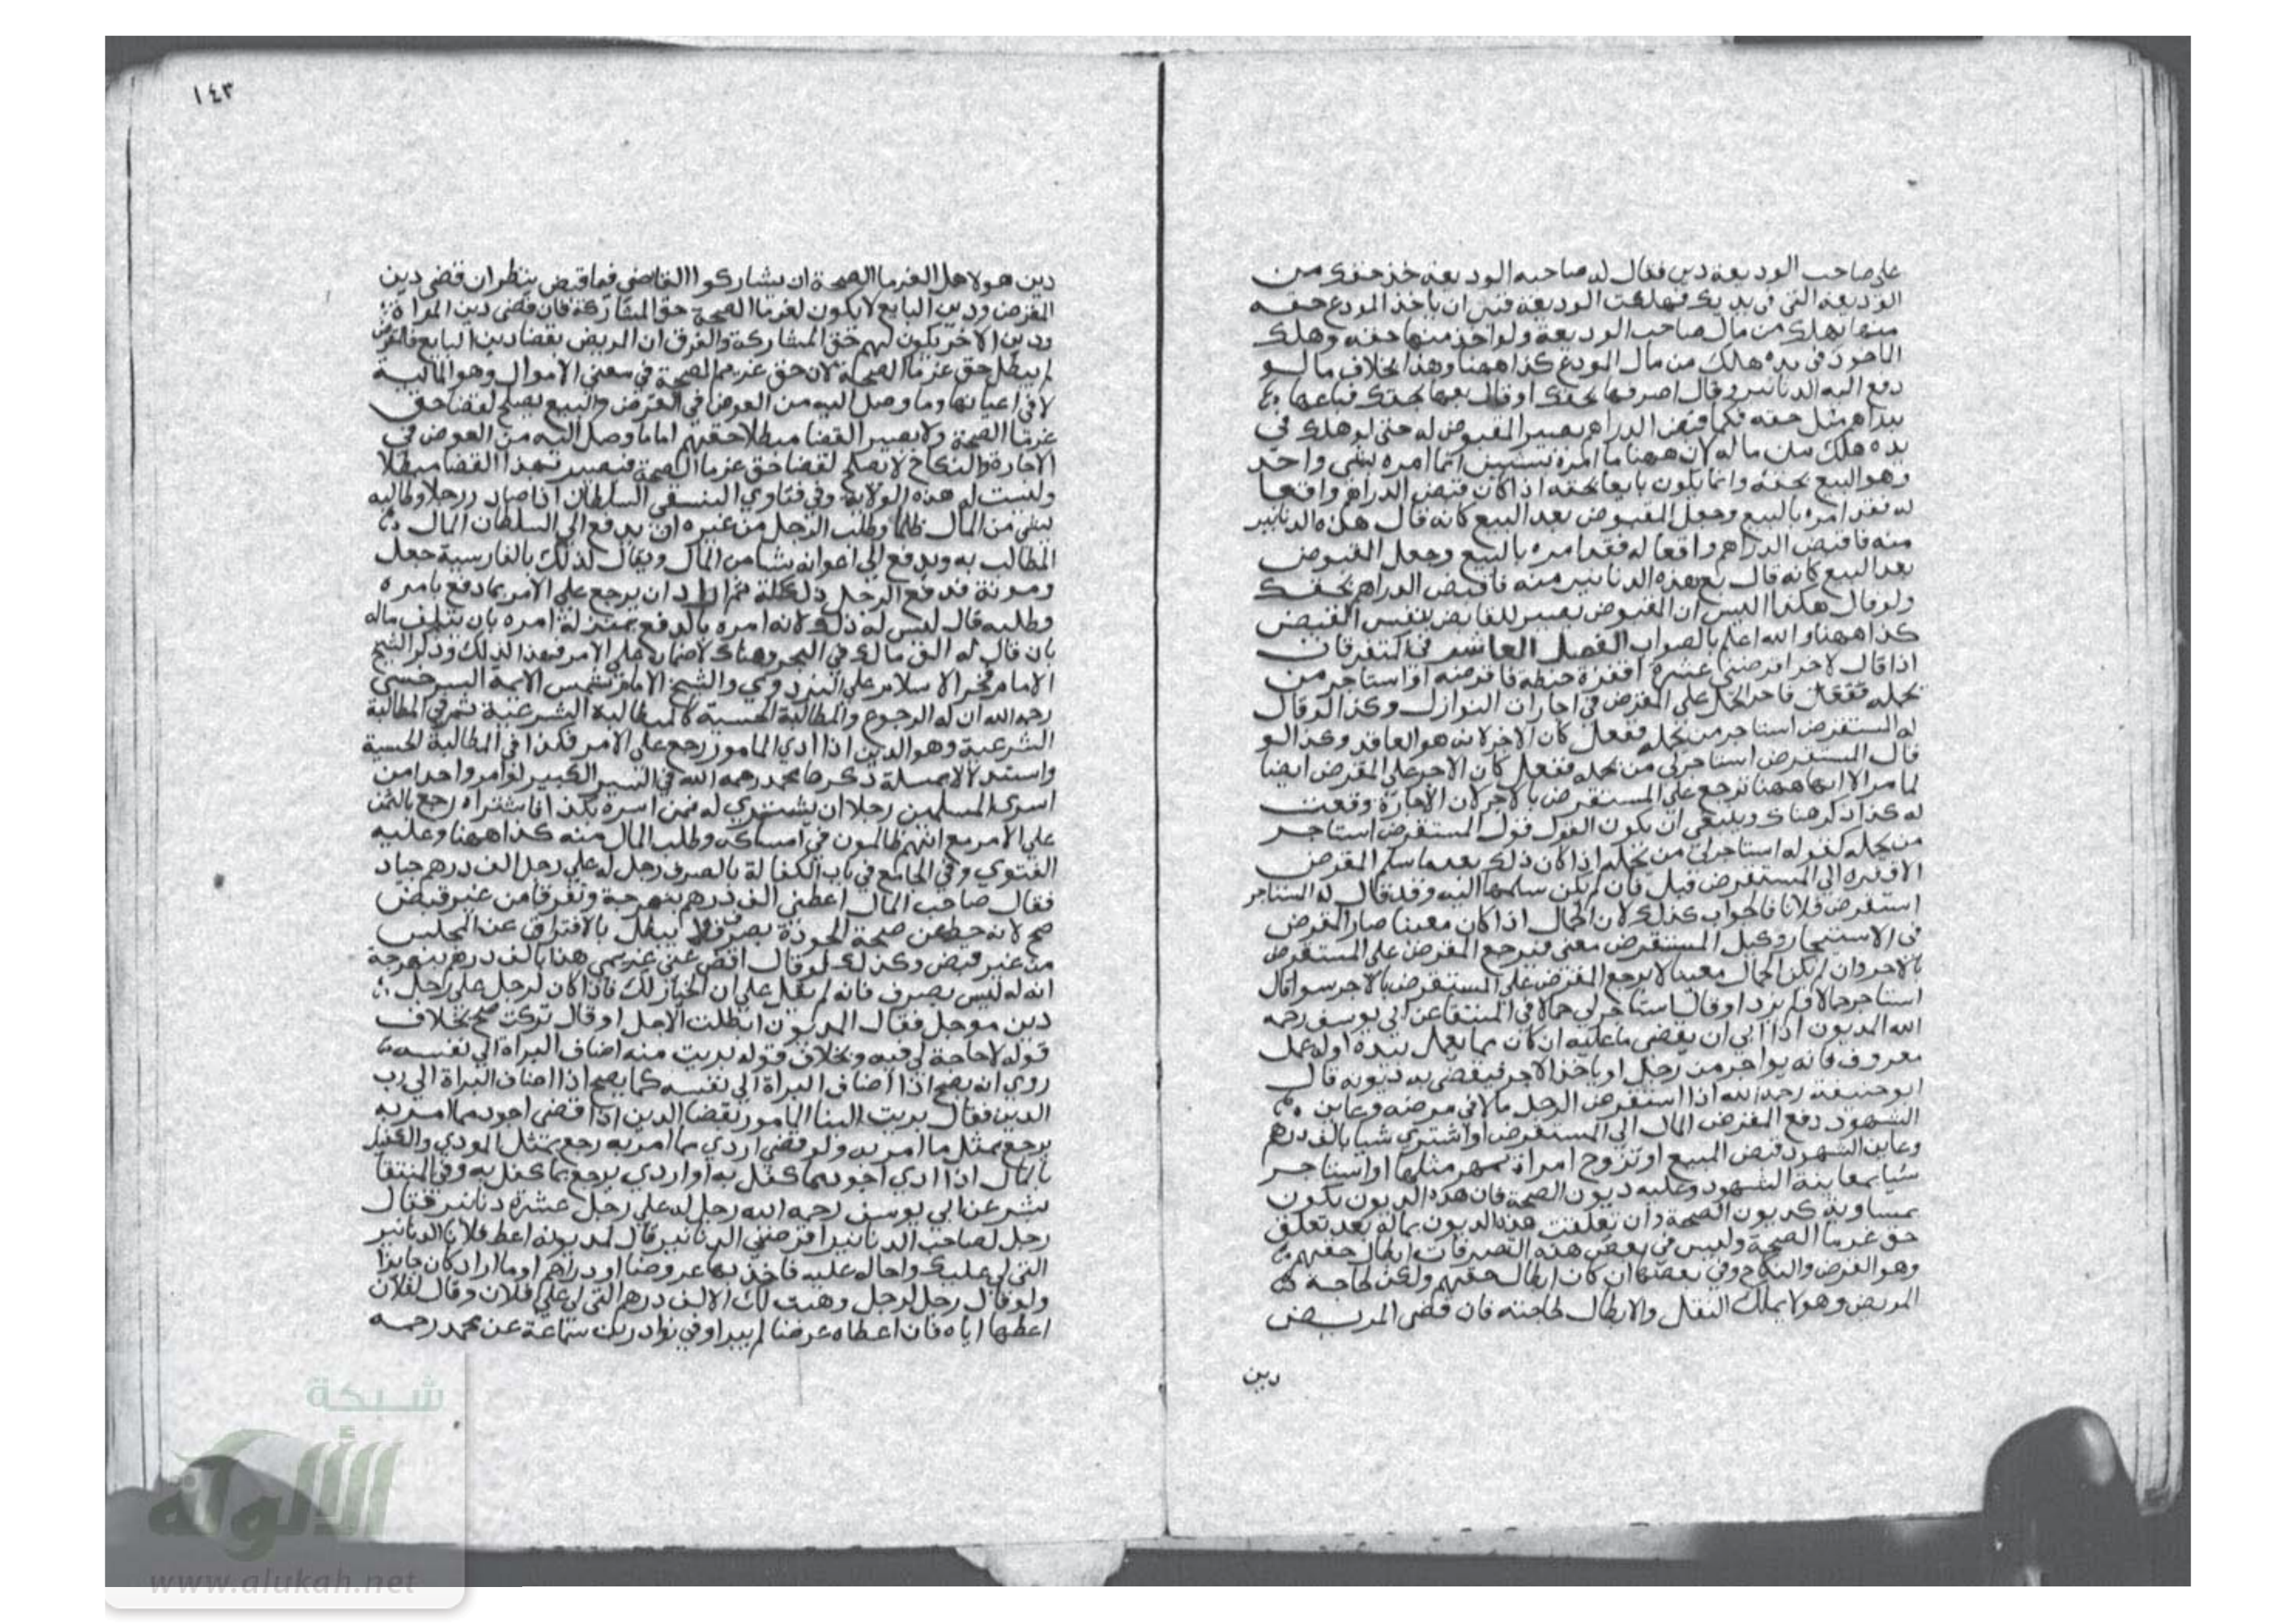 على صاحب الوديعة دين فقال له صاحب الوديعة خذ حقك من
الوديعة التي في يديك فهلكت الوديعة قبل ان ياخذ المودع حقه
منها يهلك من مال صاحب الوديعة ولو اخذ منها حقه وهلك
الماخوذ في يده هلك من مال المودع كذا ههنا وهذا بخلاف ما لو
دفع اليه الدنانير وقال اصرفها بحقك او قال بعها بحقك فباعها
بدراهم مثل حقه فكما قبض الدراهم يصير المقبوض له حتى لو هلك في
يده هلك من ماله لان ههنا ما امره بشيئين انما امره بشي واحد
وهو البيع بحقه وانما يكون بايعا بحقه اذا كان قبض الدراهم واقعا
له فقد امره بالبيع وجعل المقبوض بعد البيع كانه قال هذه الدنانير
منه فاقبض الدراهم واقعا له فقد امره بالبيع وجعل المقبوض
بعد البيع كانه قال بع هذه الدنانير منه فاقبض الدراهم بحقك
ولو قال هكذا اليس ان المقبوض يصير للقابض بنفس القبض
كذا ههنا والله اعلم بالصواب الفصل العاشر في المتفرقات
اذا قال لاخر اقرضني عشرة اقفزة حنطة فاقرضه او استاجر من
يحمله ففعل فاجر الحمل على المقرض في اجارات النوازل وكذا لو قال
له المستقرض استاجر من يحمله ففعل كان الاجر لانه هو العاقد وكذا لو
قال المستقرض استاجر لي من يحمله ففعل كان الاجر على المقرض ايضا
لما مر الا ان ههنا يرجع على المستقرض بالاجر لان الاجارة وقعت
له كذا ذكر هناك وينبغي ان يكون القول قول المستقرض استاجر
من يحمله كقوله استاجر لي من يحمله اذا كان ذلك بعد ما سلم المقرض
الاقفزه الى المستقرض قبل فان لم يكن سلمها اليه وقد قال له استاجر
استقرض فلانا فالجواب كذلك لان الحمال اذا كان معينا صار المقرض
في الاستيجار وكيل المستقرض معنى فيرجع المقرض على المستقرض
بالاجر وان لم يكن الحمال معينا لا يرجع المقرض على المستقرض بالاجر سوا قال
استاجر حمالا فلم يزد او قال استاجر لي حمالا في المنتقا عن ابي يوسف رحمه
الله المديون اذا ابى ان يقضي ما عليه ان كان مما يعمل بيده او له عمل
معروف فانه يواجر من رجل او ياخذ الاجر فيقضى به ديونه قال
ابو حنيفة رحمه الله اذا استقرض الرجل مالا في مرضه وعاين
الشهود دفع المقرض المال الى المستقرض او اشترى شيا بالف درهم
وعاين الشهود قبض المبيع او تزوج امراة بمهر مثلها او استاجر
شيا بمعاينة الشهود وعليه ديون الصحة فان هذه الديون تكون
مساوية كديون الصحة وان تعلقت هذه الديون بماله بعد تعلق
حق غرما الصحة وليس في بعض هذه التصرفات ابطال حقهم
وهو القرض والنكاح وفي بعضها ان كان ابطال حقهم ولكن لحاجة
المريض وهو لا يملك النقل والابطال لحاجته فان قضى المريض
دين
١٤٣
دين هولا هل لغرما الصحة ان يشاركوا القاضي فيما قبض ينظر ان قضى دين
المقرض ودين البايع لا يكون لغرما الصحة حق المشاركة فان قضى دين المراة
ودين الاخر يكون لهم حق المشاركة والفرق ان المريض بقضا دين البايع والمقرض
لم يبطل حق غرما الصحة لان حق غريم الصحة في معنى الاموال وهو المالية
لا في اعيانها وما وصل اليه من العوض في القرض والبيع يصلح لقضا حق
غرما الصحة ولا يصير القضا مبطلا حقهم اما ما وصل اليه من العوض في
الاجارة والنكاح لا يصلح لقضا حق غرما الصحة فيصير بهذا القضا مبطلا
وليست له هذه الولاية وفي فتاوي النسفي السلطان اذا صادر رجلا وطالبه
بشي من المال ظلما وطلب الرجل من غيره ان يدفع الى السلطان المال
المطالب به ويدفع الى اعوانه شيا من المال ويقال لذلك بالفارسية جعل
ومونة فدفع الرجل ذلك كله ثم اراد ان يرجع على الامر بما دفع بامره
وطلبه قال ليس له ذلك لانه امره بالدفع بمنزلة امره بان يتلف ماله
بان قال له الق مالك في البحر وهناك لا ضمان على الامر فهذا كذلك وذكر الشيخ
الامام فخر الاسلام علي البزدوي والشيخ الامام شمس الايمة السرخسي
رحمه الله ان له الرجوع والمطالبة الحسية كالمطالبة الشرعية ثم في المطالبة
الشرعية وهو الدين اذا ادى المامور رجع على الامر فكذا في المطالبة الحسية
واستدلا بمسلة ذكرها محمد رحمه الله في السير الكبير لو امر واحد من
اسرى المسلمين رجلا ان يشتري له ممن اسره بكذا فاشتراه رجع بالثمن
على الامر مع انهم ظالمون في امساكه وطلب المال منه كذا ههنا وعليه
الفتوى وفي الجامع في باب الكفالة بالصرف رجل له على رجل الف درهم جياد
فقال صاحب المال اعطني الف درهم بنهرجة وتفرقا من غير قبض
صح لانه حط عن صحة الجودة بصرف فلا يبطل بالافتراق عن المجلس
من غير قبض وكذلك لو قال اقض عني غريمي هذا بالف درهم بنهرجة
انه له ليس بصرف فانه لم يقل على ان الخيار لك فاذا كان لرجل على رجل
دين موجل فقال المديون ابطلت الاجل او قال تركت صح بخلاف
قوله لا حاجة لي فيه وبخلاف قوله بريت منه اضاف البراة الى نفسه
روي انه يصح اذا اضاف البراة الى نفسه كما يصح اذا اضاف البراة الى رب
الدين فقال بريت الينا المامور بقضا الدين اذا قضى اجود مما امر به
يرجع بمثل ما امر به ولو قضى اردى مما امر به رجع بمثل المودي والكفيل
بالمال اذا ادى اجود مما كفل به او اردى يرجع بما كفل به وفي المنتقا
بشر عن ابي يوسف رحمه الله رجل له على رجل عشرة دنانير فقال
رجل لصاحب الدنانير اقرضني الدنانير قال لمديونه اعط فلانا الدنانير
التي لي عليك واحاله عليه فاخذ بها عروضا او دراهم او ما اراد كان جايزا
ولو قال رجل لرجل وهبت لك الالف درهم التي لي على فلان وقال لفلان
اعطها اياه فان اعطاه عرضا لم يبرا وفي نوادر ابن سماعة عن محمد رحمه
شبكة
الألوكة
www.alukah.net